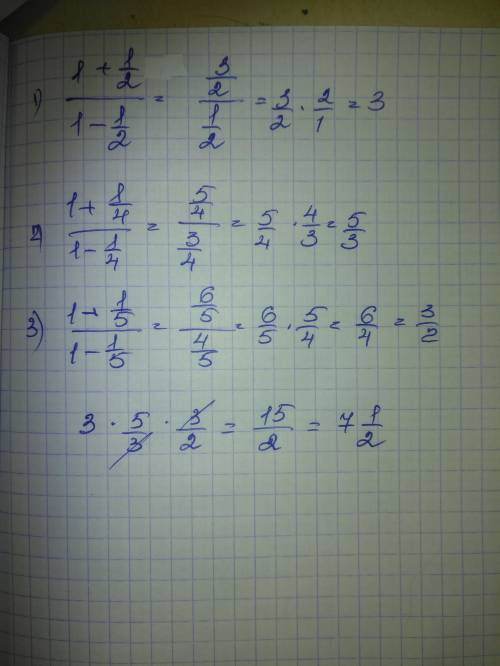 1) (1 + 1/2)/(1 - 1/2) = (3/2)/(1/2) = 3/2 · 2/1 = 3
2) (1 + 1/4)/(1 - 1/4) = (5/4)/(3/4) = 5/4 · 4/3 = 5/3
3) (1 + 1/5)/(1 - 1/5) = (6/5)/(4/5) = 6/5 · 5/4 = 6/4 = 3/2
3 · 5/3 · 3/2 = 15/2 = 7 1/2